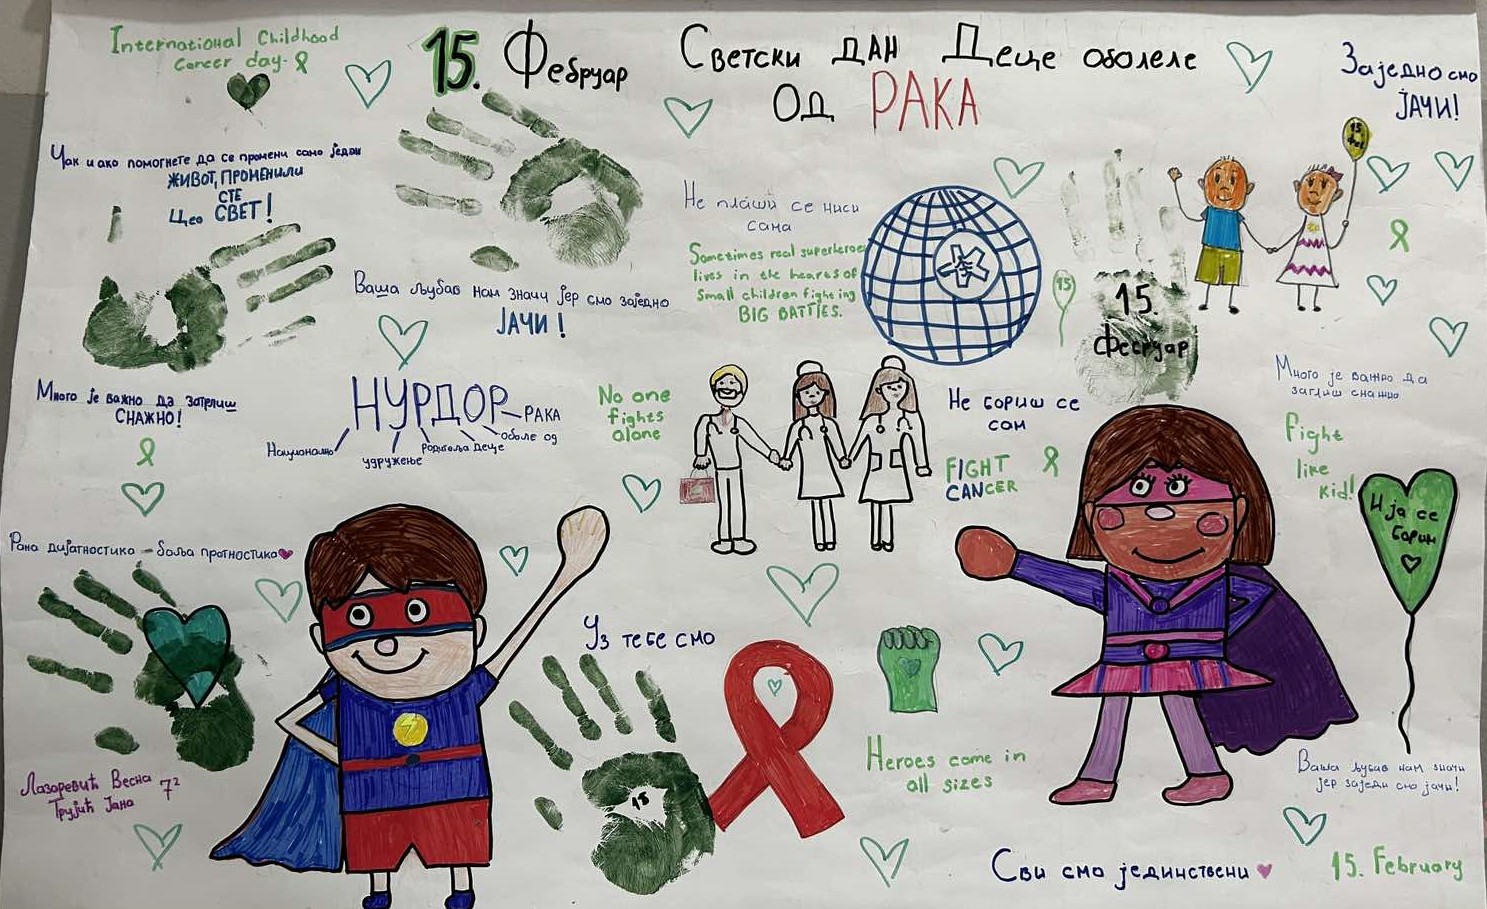 International Childhood
Cancer day-
15. Фебруар
Светски дан Деце оболеле
Од РАКА
Заједно смо
ЈАЧИ!
Чак и ако помогнете да се промени само један
ЖИВОТ, ПРОМЕНИЛИ
СТЕ
Цео СВЕТ!
Ваша љубав нам значи јер смо заједно
ЈАЧИ!
Не плаши се ниси
сама
Sometimes real superheroes
lives in the hearts of
small children fighting
BIG BATTLES.
15
15.
Фебруар
15
Феб
Много је важно да загрлиш
СНАЖНО!
НУРДОР
РАКА
оболе од
Родитеља Деце
удружење
Национално
No one
fights
alone
Не бориш се
сам
FIGHT
CANCER
Много је важно да
загрлиш снажно
Fight
like
kid!
И ја се
борим
Рана дијагностика - боља прогностика
Уз тебе смо
15
Heroes come in
all sizes
Лазаревић Весна 7²
Трујић Јана
Ваша љубав нам значи
јер заједи смо јачи!
Сви смо јединствени
15. February